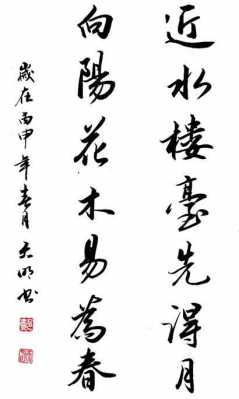 近水楼臺先得月
向陽花木易為春
歲在丙申年春月天明书